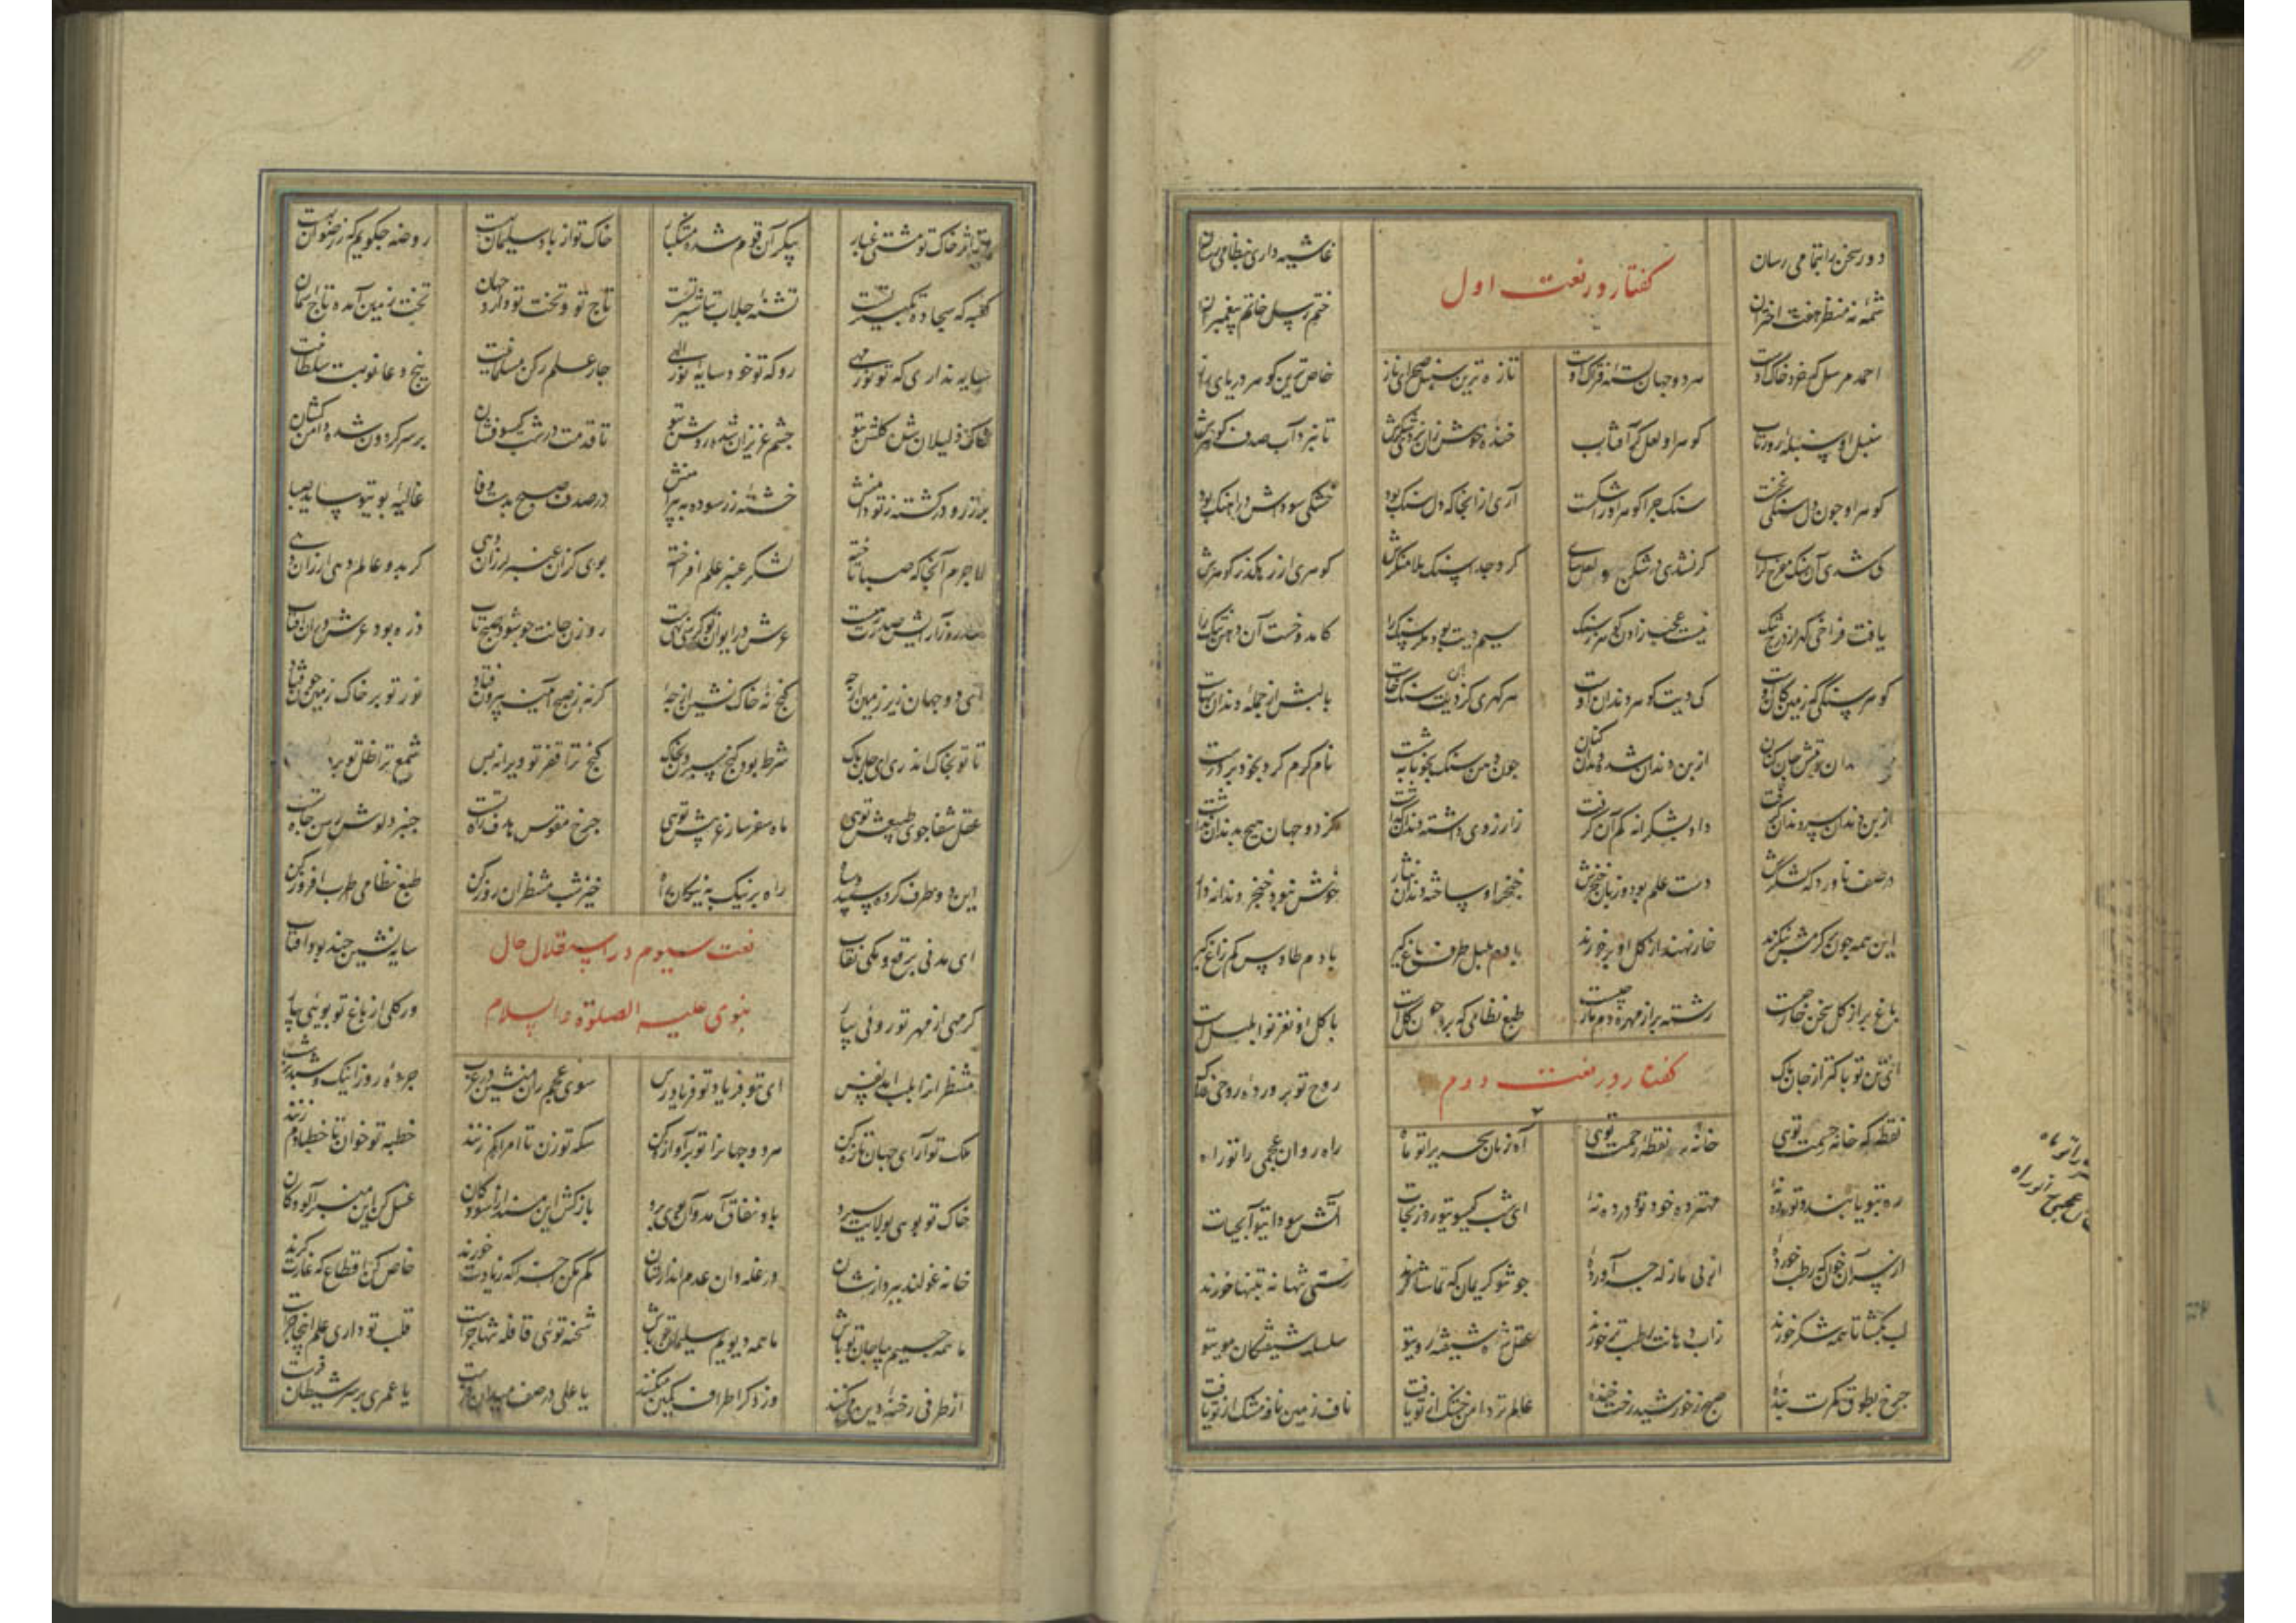 دور سخن را بتمامی رسان غاشیه داری بنظامی رسان
گفتار در نعت اول
شمسه نه منظر هفت اختران ختم رسل خاتم پیغمبران
احمد مرسل که خرد خاک اوست هر دو جهان بسته فتراک اوست تازه ترین سنبل صحرای ناز خاص ترین گوهر دریای راز
سنبل او سنبله روز تاب گوهر او لعل گر آفتاب خنده خوش زان نزدی شکرش تا نبرد آب صدف گوهرش
گوهر او چون دل سنگی نخست سنگ چرا گوهر او را شکست آری از آنجا که دل سنگ بود خشکی سوداش در آهنگ بود
کی شدی آن سنگ مفرح گرای گر نشدی در شکن و لعل سای کرد جدا سنگ ملامتگرش گوهری از رهگذر گوهرش
یافت فراخی گهر از درج تنگ نیست عجب زادن گوهر ز سنگ سیم دیت بود مگر سنگ را کامد و خست آن دهن تنگ را
گوهر سنگی که زمین کان اوست کی دیت گوهر دندان اوست هر گهری کز دهن سنگ خاست با لبش از جمله دندان بهاست
جان کنان از بن دندان شده دندان کنان چون دهن سنگ بخونابه شست نام کرم کرد بخود بر درست
از بن دندان سر دندان گرفت داد بشکرانه کم آن گرفت زارزوی داشته دندان گذاشت کز دو جهان هیچ بدندان نداشت
در صف ناورد گه لشکرش دست علم بود و زبان خنجرش خنجر او ساخته دندان نثار خوش نبود خنجر دندانه دار
این همه چون کرمش بنگرند خار نهند از گل او بر خورند با دم بلبل طرف باغ گیر با دم طاوس کم زاغ گیر
باغ پر از گل سخن خار چیست رشته پر از مهره دم مار چیست طبع نظامی که بدو چون گلست با گل او نغز نوا بلبلست
گفتار در نعت دوم
ای تن تو پاکتر از جان پاک روح تو پرورده روحی فداک
نقطه گه خانه رحمت توی خانه بر نقطه زحمت توی راه روان عجمی را تو راه
ره بتو یابند و تو ره ده نه مهتر ده خود تو و در ده نه ای شب گیسوی تو روز نجات آتش سودای تو آب حیات
از پی آن خوان که رطب خورده از پی ما زله چه آورده چو تو کریمان که تماشا کنند رستی تنها نه بتنها خورند
لب بگشا تا همه شکر خورند زاب دهانت رطب تر خورند عقل شده شیفته روی تو سلسله شیفتگان موی تو
چرخ بطوق کمرت بنده صبح ز خورشید رخت خنده عالم تر دامن خشک از تو یافت ناف زمین نافه مشک از تو یافت
از اثر خاک تو مشکین غبار پیکر آن قوم شده مشکبار خاک تو از باد سلیمان بهست روضه چگویم که ز رضوان بهست
کعبه که سجاده تکبیر تست تشنه جلاب تباشیر تست تاج تو و تخت تو دارد جهان تخت زمین آمده تاج آسمان
سایه نداری که تو نور مهی رو که تو خود سایه نور اللهی چار علم رکن مسلمانیت پنج دعا نوبت سلطانیت
خاک ذلیلان شده گلشن بتو چشم عزیزان شده روشن بتو تا قدمت در شب گیسو فشان بر سر گردون شده دامن کشان
پر زر و در گشته ز تو دامنش خشتک زر سوده به پیراهنش در صدف صبح بدست وفا غالیه بوی تو ساید صبا
لاجرم آنجا که صبا تاخته لشکر عنبر علم افراخته بوی کزان عنبر لرزان دهی گر بدو عالم دهی ارزان دهی
سدره ز آرایش صدرت زهیست عرش در ایوان تو کرسی نهیست روزن جانت چو شود صبح تاب ذره بود عرش در آن آفتاب
ای دو جهان زیر زمین از چه گنج نه خاک نشین از چه گرنه ز صبح آینه بیرون فتاد نور تو بر خاک زمین چون فتاد
تا تو بخاک اندری ای جان پاک شرط بود گنج سپردن بخاک گنج ترا فقر تو ویرانه بس شمع ترا ظل تو
عقل شفا جوی طبیبش توی ماه سفر ساز غریبش توی چرخ مقوس هدف آه تست چنبر دلوش رسن چاه تست
این دو طرف کرده سپید و سیاه راه بر نیک به نیکان خیز شب منتظران روز کن طبع نظامی طرب افروز کن
ای مدنی برقع و مکی نقاب سایه نشین چند بود آفتاب
نعت سیوم در استقلال حال
گر مهی از مهر تو روئی بیار ور گلی از باغ تو بوئی بیار
نبوی علیه الصلوة والسلام
منتظران را بلب آمد نفس ای بتو فریاد تو فریادرس سوی عجم ران منشین در عرب جرده روز اینک و شبدیز شب
ملک نو آرای جهان تازه کن هر دو جهانرا تو پر آوازه کن سکه تو زن تا امرا کم زنند خطبه تو خوان تا خطبا دم زنند
خاک تو بوی بولایت سپرد باد نفاق آمد و آن بوی برد بازکش این مسند از آسودگان غسل کن این منبر از آلودگان
خانه غولند بپردازشان در غله دان عدم اندازشان کم کن که زیادت خورند خاص کن اقطاع که غارت گرند
ما همه جسمیم بیا جان تو باش ما همه دیویم سلیمان تو باش شحنه توئی قافله تنها چراست قلب تو داری علم آنجا چراست
از طرفی رخنه دین میکنند وز دگر اطراف کمین میکنند یا علی در صف میدان فرست یا عمری بر سر شیطان فرست